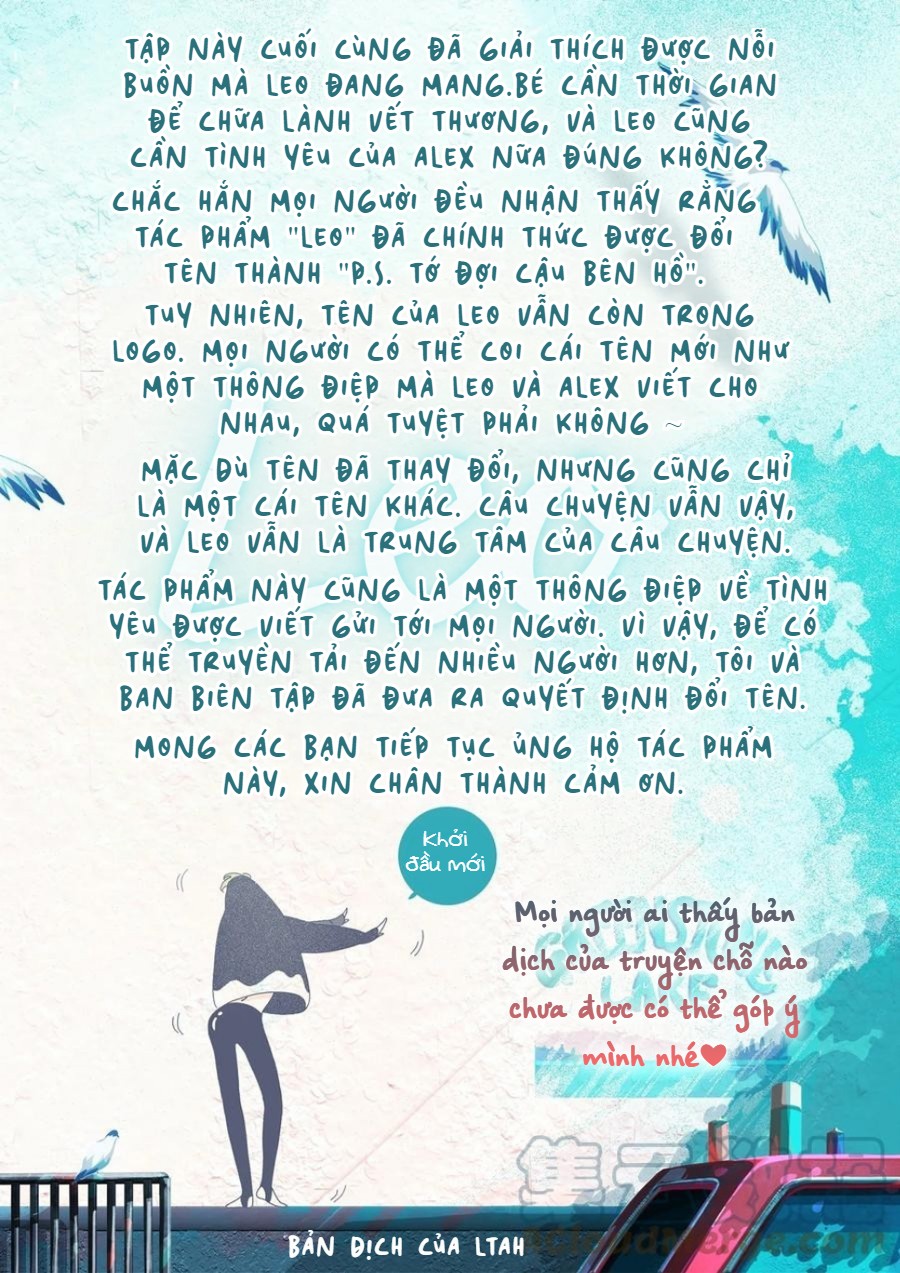 TẬP NÀY CUỐI CÙNG ĐÃ GIẢI THÍCH ĐƯỢC NỖI
BUỒN MÀ LEO ĐANG MANG.BÉ CẦN THỜI GIAN
ĐỂ CHỮA LÀNH VẾT THƯƠNG, VÀ LEO CŨNG
CẦN TÌNH YÊU CỦA ALEX NỮA ĐÚNG KHÔNG?
CHẮC HẲN MỌI NGƯỜI ĐỀU NHẬN THẤY RẰNG
TÁC PHẨM "LEO" ĐÃ CHÍNH THỨC ĐƯỢC ĐỔI
TÊN THÀNH "P.S. TỚ ĐỢI CẬU BÊN HỒ".
TUY NHIÊN, TÊN CỦA LEO VẪN CÒN TRONG
LOGO. MỌI NGƯỜI CÓ THỂ COI CÁI TÊN MỚI NHƯ
MỘT THÔNG ĐIỆP MÀ LEO VÀ ALEX VIẾT CHO
NHAU, QUÁ TUYỆT PHẢI KHÔNG ~
MẶC DÙ TÊN ĐÃ THAY ĐỔI, NHƯNG CŨNG CHỈ
LÀ MỘT CÁI TÊN KHÁC. CÂU CHUYỆN VẪN VẬY,
VÀ LEO VẪN LÀ TRUNG TÂM CỦA CÂU CHUYỆN.
Leo
TÁC PHẨM NÀY CŨNG LÀ MỘT THÔNG ĐIỆP VỀ TÌNH
YÊU ĐƯỢC VIẾT GỬI TỚI MỌI NGƯỜI. VÌ VẬY, ĐỂ CÓ
THỂ TRUYỀN TẢI ĐẾN NHIỀU NGƯỜI HƠN, TÔI VÀ
BAN BIÊN TẬP ĐÃ ĐƯA RA QUYẾT ĐỊNH ĐỔI TÊN.
MONG CÁC BẠN TIẾP TỤC ỦNG HỘ TÁC PHẨM
NÀY, XIN CHÂN THÀNH CẢM ƠN.
Khởi
đầu mới
Mọi người ai thấy bản
dịch của truyện chỗ nào
chưa được có thể góp ý
mình nhé❤
LAKE
BẢN DỊCH CỦA LTAH